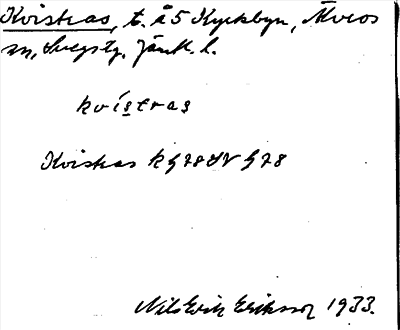 Kvistras, t. å 5 Kyrkbyn, Älvros
sn, Svegs tg, Jämtl. l.
kvístras
Kvistras
Nils Erik Eriksson 1933.